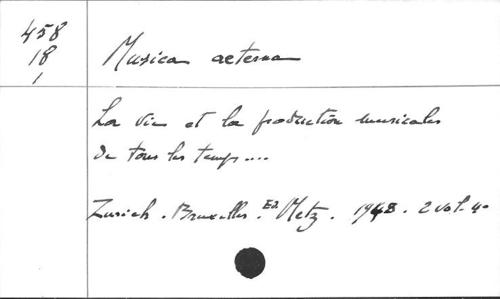 458
18
1
Musica aeterna
La vie et la production musicales
de tous les temps....
Zurich. Bruxelles. Ed. Metz. 1948. 2 vol. 4o